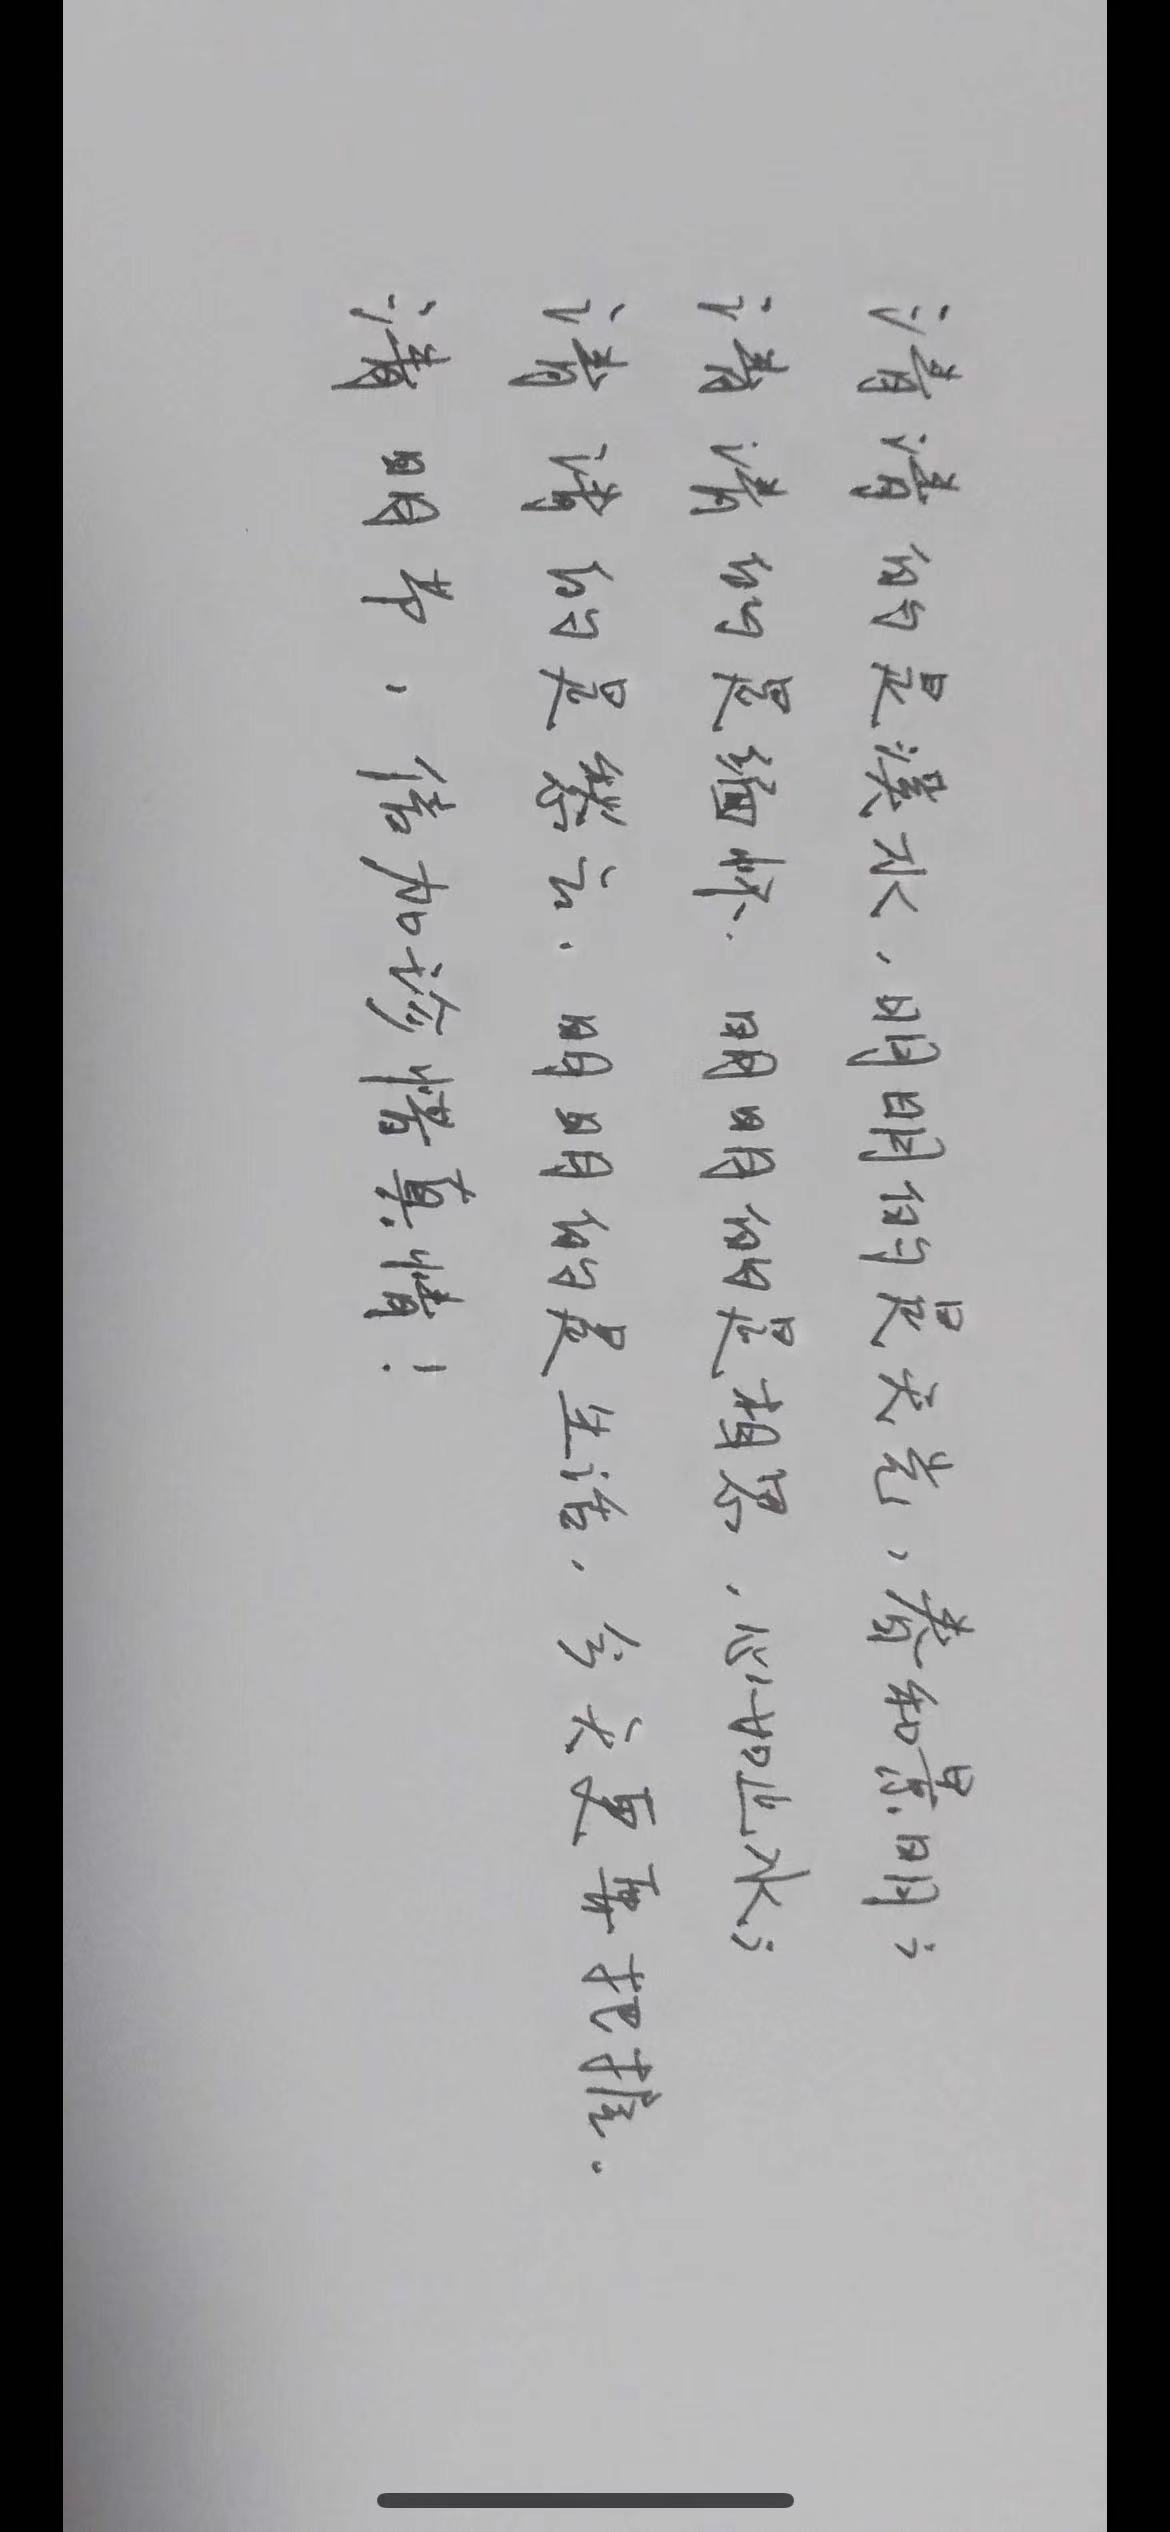 清清的是溪水，明明的是天光，春和景明；
清清的是缅怀，明明的是相思，心如止水；
清清的是祭言，明明的是生活，今天更要把握。
清明节，倍加珍惜真情！